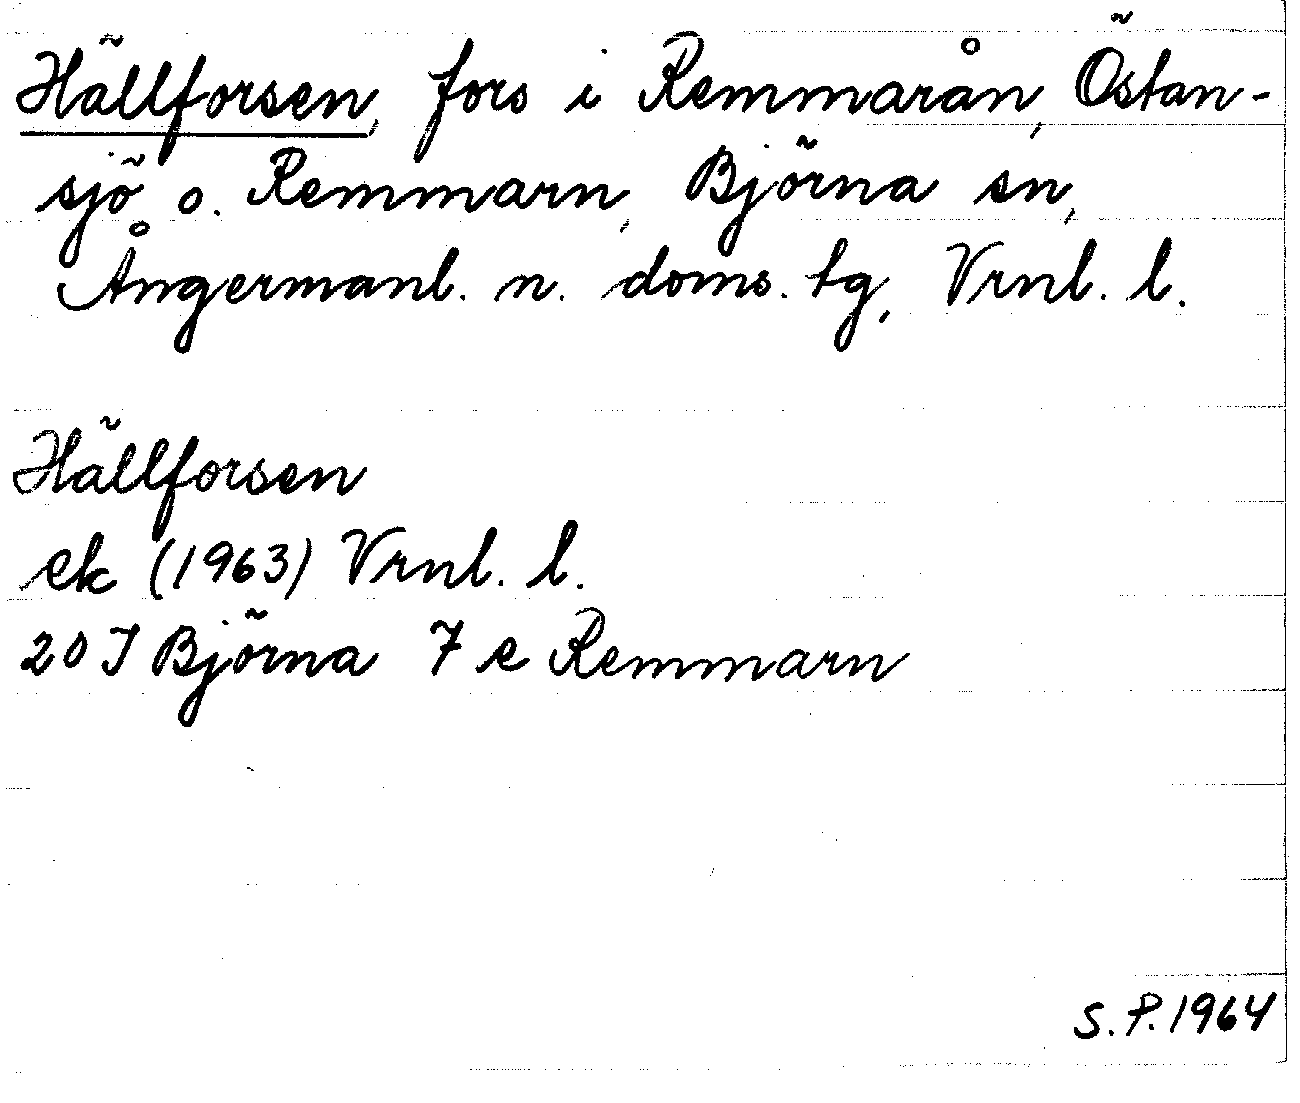 Hällforsen, fors i Remmarån, Östan-
sjö o. Remmarn, Björna sn,
Ångermanl. n. doms. tg, Vrnl. l.
Hällforsen
ek (1963) Vrnl. l.
20 J Björna 7 e Remmarn
S.P. 1964